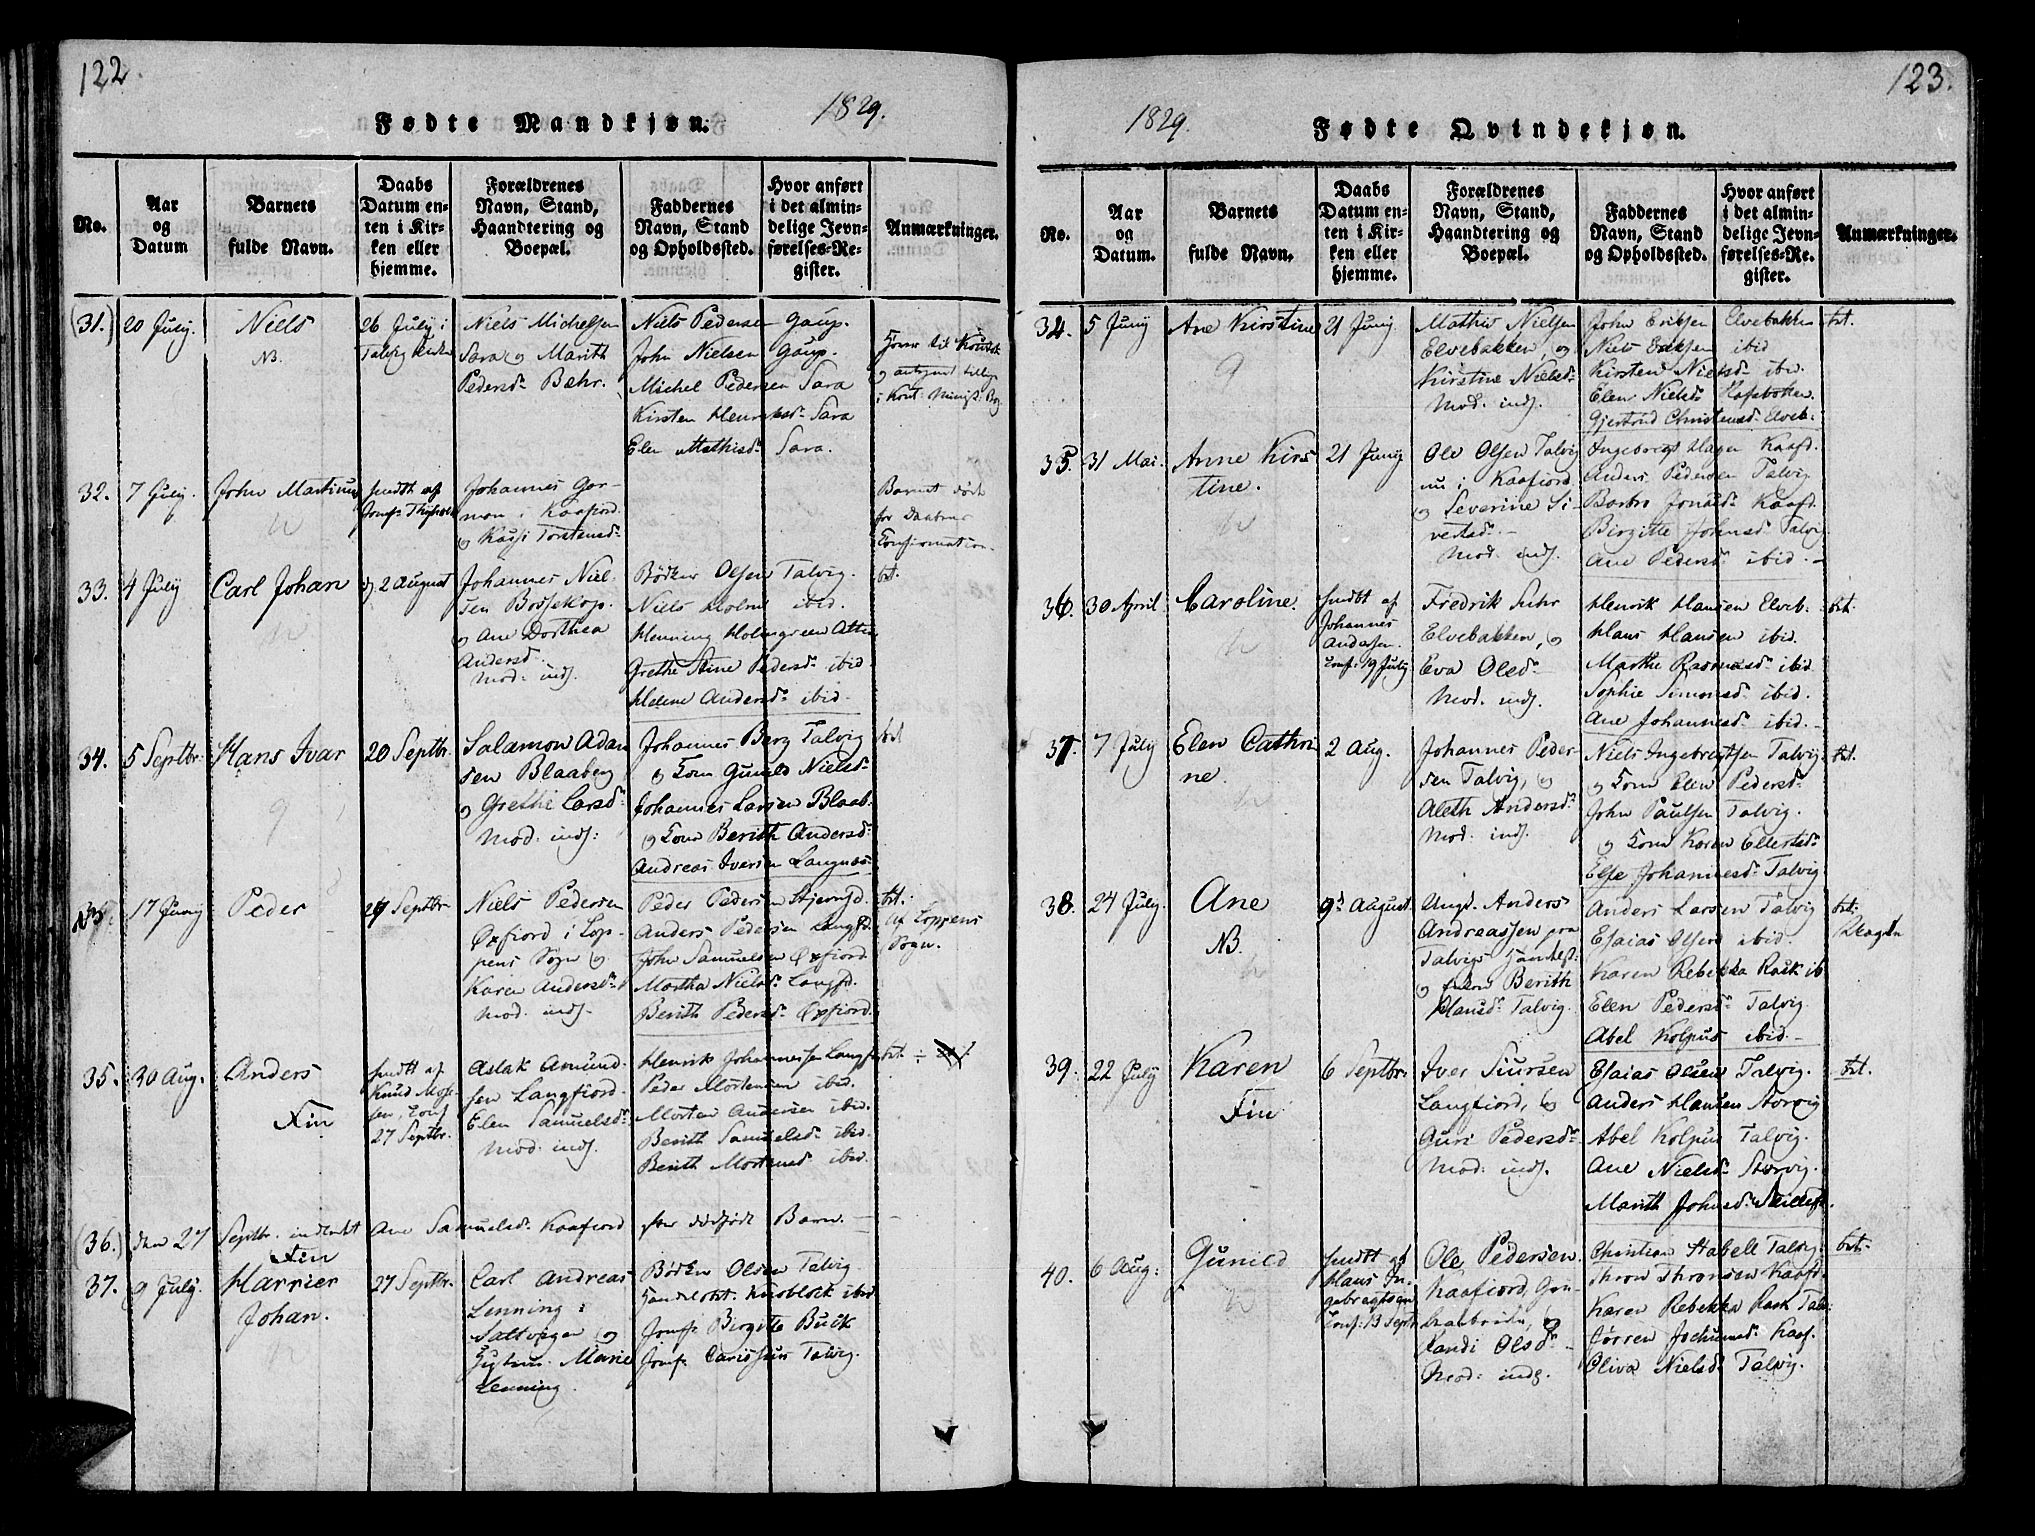 122.
Fødte Mandkjøn. 1829.
No.
Aar og Datum
Barnets fulde Navn.
Daabs Datum enten i Kirken eller hjemme.
Forældrenes Navn, Stand, Haandtering og Boepæl.
Faddernes Navn, Stand og Opholdssted.
Hvor anført i det almindelige Jevnførelses-Register.
Anmærkninger.
(31.) 20 July.
Niels
NB.
26 July i
Talvig Kirken
Niels Michelsen
Sara og Marith
Pedersd. Behr.
Niels Pedersen Gaup.
John Nielsen Gaup.
Michel Pedersen Sara
Kirsten Henriksd. Sara
Elen Mathisd. Sara.
32. 7 July.
John Martinus
hmdt af
Johannes Gor-
mon i Kaafiord.
og Kaisi Torstensd.
Barnet døde
før Daabens
Confirmation.
33. 4 July
Carl Johan
2 August
Johannes Niel-
sen Bossekop.
og Ane Dorthea
Andersd.
Mod. indf.
Bødker Olsen Talvig.
Niels Holm ibid.
Henning Holmgreen Alten
Grethe Stine Pedersd. ibid
Helene Andersd. ibid.
bet.
34. 5 Septbr.
Hans Ivar
20 Septbr.
Salamon Adam
sen Blaaberg
og Grethe Larsd.
Mod. indf.
Johannes Berg Talvig
og Kone Gunild Nielsd.
Johannes Larsen Blaab.
og Kone Berith Andersd.
Andreas Iversen Langnæs
bet
17 Juny
Peder
27 Septbr
Niels Pedersen
Øxfiord i Lop-
pens Sogn og
Karen Andersd.
Mod. indf.
Peder Pedersen Stjerngd.
Anders Pedersen Langfd.
John Samuelsen Øxfiord
Martha Nielsd. Langfd.
Berith Pedersd. Øxfiord.
bet.
Af Loppens
Sogn.
35. 30 Aug.
Anders
Fin
hmdt af
Knud Mos-
sen, Conf
27 Septbr.
Aslak Amund-
sen Langfiord.
Elen Samuelsd.
Mod. indf.
Henrik Johannessen Langf.
Peder Mortensen ibid.
Morten Andersen ibid.
Berith Samuelsd. ibid.
Berith Mortensd. ibid.
bet.
(36.) den 27 Septbr. indledet Ane Samuelsd. Kaafiord efter dødfødt Barn.
Fin
37. 9 July.
Harrier
Johan.
27 Septbr.
Carl Andreas
Lenning i
Saltvogen og
Hustru Marie
Lenning.
Bødker Olsen Talvig
Handelsbt. Knoblock ibid
Jomf. Birgitte Buck
Jomf. Talvig.
123.
1829. Fødte Qvindekjøn.
No.
Aar og Datum.
Barnets fulde Navn.
Daabs Datum enten i Kirken eller hjemme.
Forældrenes Navn, Stand, Haandtering og Boepæl.
Faddernes Navn, Stand og Opholdssted.
Hvor anført i det almindelige Jevnførelses-Register.
Anmærkninger.
34. 5 Juny
Ane Kirstine
21 Juny.
Mathis Nielsen
Elvebakken, og
Kirstine Nielsd.
Mod. indf.
John Eriksen Elvebakken
Niels Eriksen ibid
Kirsten Nielsd. ibid.
Elen Nielsd.
Gjertrud Christensd. Elveb.
bet.
35. 31 Mai.
Anne Kirs
tine.
21 Juny
Ole Olsen Talvig
nu i Kaafiord
og Severine Si-
vertsd.
Mod. indf.
Ingeborg Hagen Kaafd.
Anders Pedersen Talvig
Barbro Jonasd. Kaafd.
Birgitte Johnsd. Talvig
Ane Pedersd. ibid.
36. 30 April.
Caroline.
hmdt af
Johannes
Andersen.
Conf. 19 July
Fredrik Suhr
Elvebakken, og
Eva Olsd.
Mod. indf.
Henrik Hansen Elveb.
Hans Hansen ibid.
Marthe Rasmusd. ibid
Sophie Simonsd. ibid.
Ane Johannesd. ibid.
bet.
37. 7 July
Elen Cathri
ne.
2 Aug.
Johannes Peder-
sen Talvig, og
Aleth Andersd.
Mod. indf.
Niels Ingebregtsen Talvig.
og Kone Elen Pedersd.
John Paulsen Talvig.
og Kone Karen Ellertsd.
Else Johannesd. Talvig
bet.
38. 24 July.
Ane
NB.
9d August.
Ungk. Anders
Andreassen paa
Talvigs Handelst.
og Enken Berith
Hansd. Talvig.
Anders Larsen Talvig
Esaias Olsen ibid.
Karen Rebekka Rask ib
Elen Pedersd. Talvig.
Abel Kolpus ibid.
bet.
39. 22 July
Karen
Fin
6 Septbr.
Iver Siursen
Langfiord, og
Guri Pedersd.
Mod. indf.
Esaias Olsen Talvig.
Anders Hansen Storvig
Abel Kolpus Talvig.
Ane Nielsd. Storvig.
Marith Johnsd.
bet.
40. 6 Aug.
Gunild
hmdt af
Hans In-
gebragtsen
Conf. 13 Septr
Ole Pedersen
Kaafiord, Gru-
bearbeider, og
Randi Olsd.
Mod. indf.
Christian Stabell Talvig.
Thron Thronsen Kaafd.
Karen Rebekka Rask Talv.
Jørren Jochumsd. Kaaf.
Oliva Nielsd. Talvig.
bet.